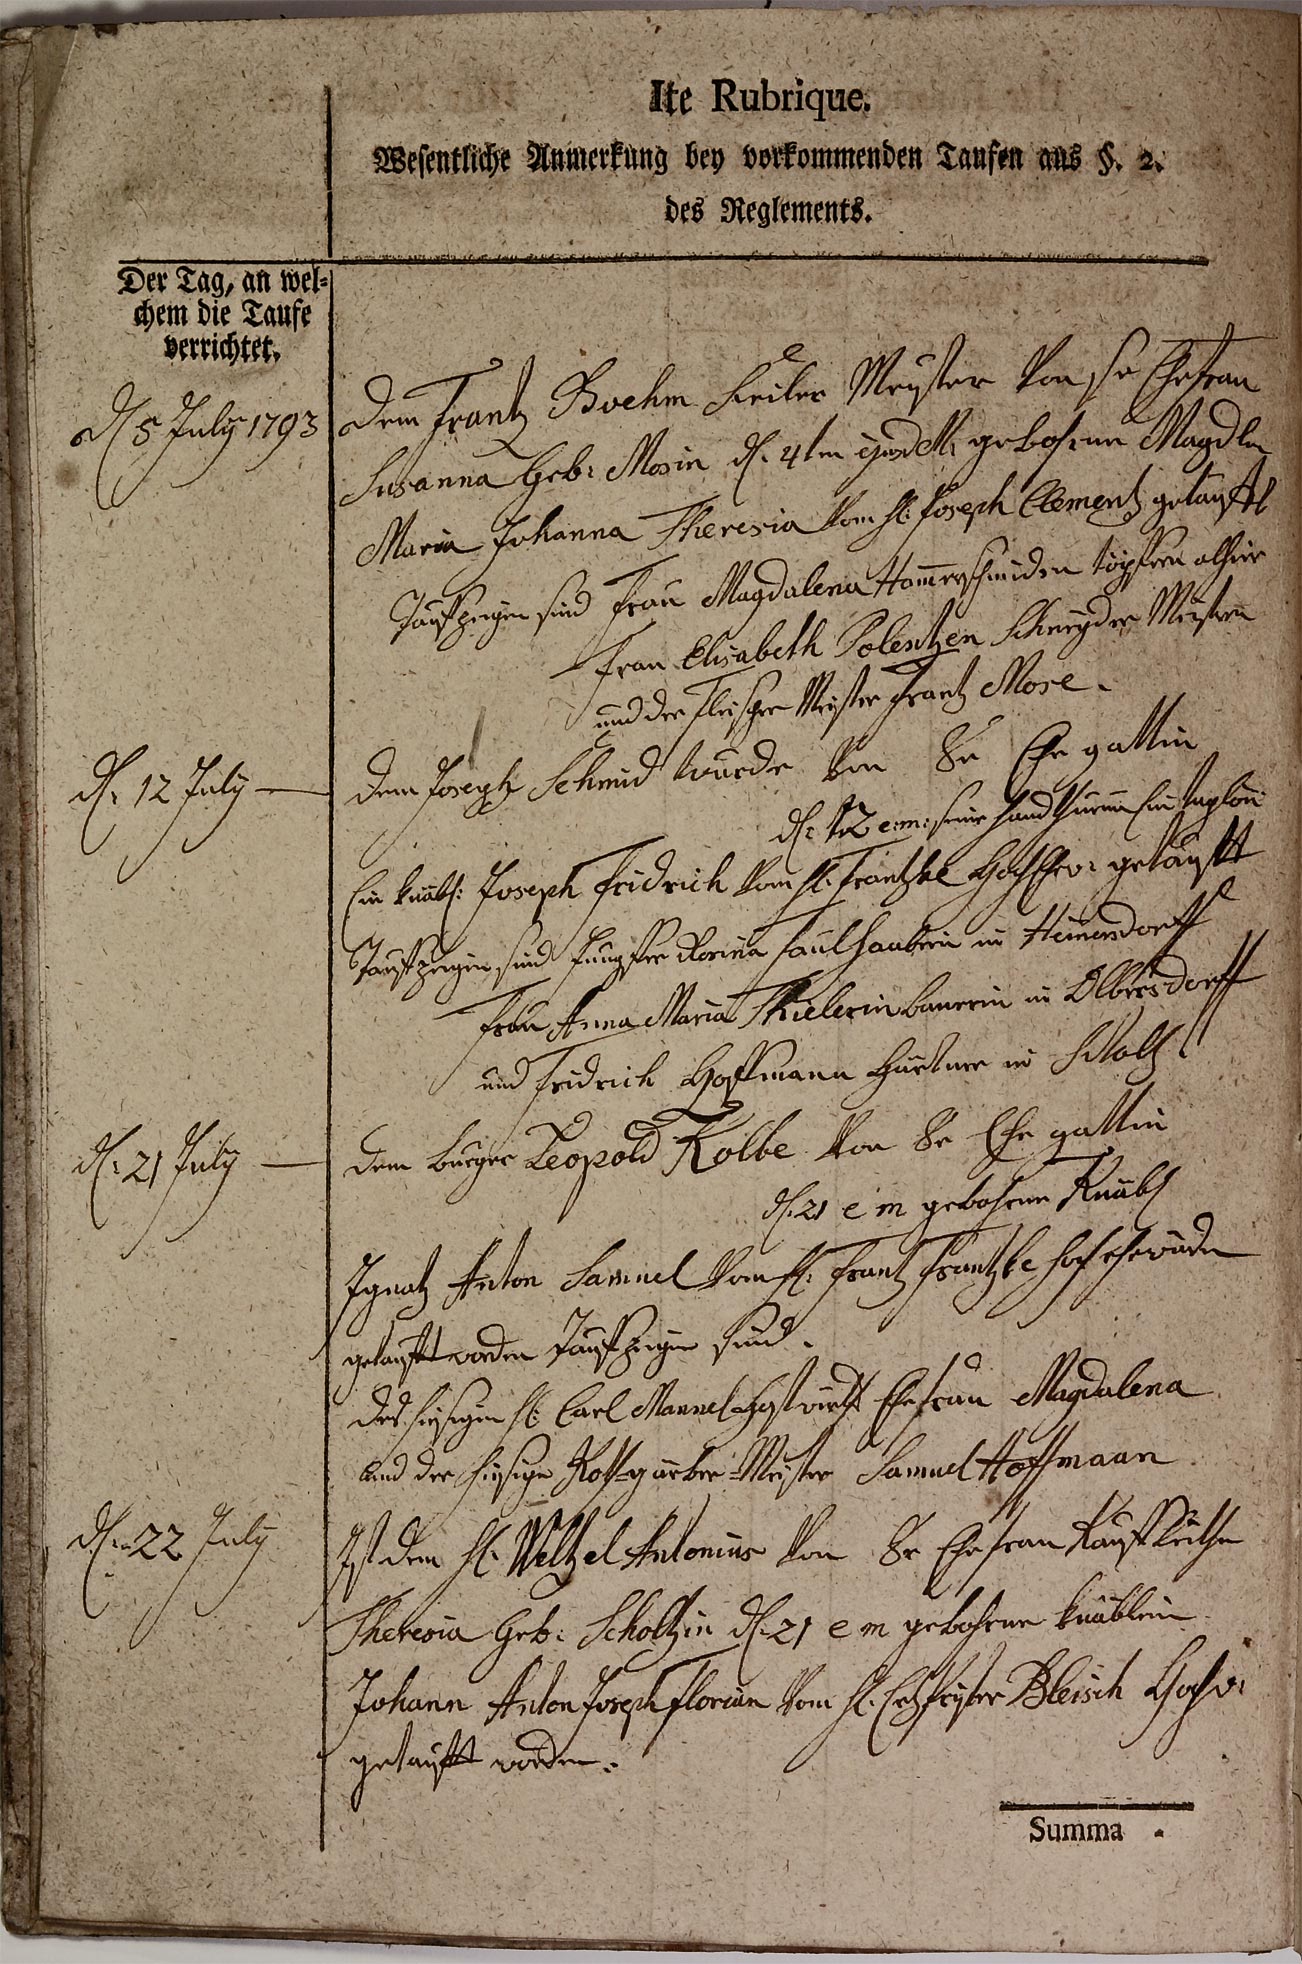 Ite Rubrique.
Wesentliche Anmerkung bey vorkommenden Taufen aus §. 2.
des Reglements.
Der Tag, an wel-
chem die Taufe
verrichtet.
d 5 July 1793
Dem Frantz Boehm Seiler Meyster von sr Ehefrau
Susanna Geb: Mosin d. 4ten gebohrene Magdln
Maria Johanna Theresia vom H: Joseph Clementz getaufft
Tauffzeugen sind Frau Magdalena Hammerschmiden töpffern alhier
Frau Elisabeth Polentzen Schneyder Meistern
und der Fleischer Meyster Frantz Mose.
d. 12 July
Dem Joseph Schmid wurde von Sr Ehe gattin
d. 12 e:m:
Ein knäbl: Joseph Fridrich vom H: Frantzke HochEhrw: getaufft
Tauffzeugen sind Jungfer Rosina Faulhaberin in Heinersdorff
Frau Anna Maria Thielerin bauerin in Olbersdorff
und Fridrich Hoffmann Gärtner in Stoltz
d. 21 July
Dem burger Leopold Kolbe von Sr Ehe gattin
d. 21 e m gebohrene Knäbl
Ignatz Anton Samuel vom H. Frantz Frantzke
getaufft worden Tauffzeugen sind.
des hiesigen H: Carl Mannel Gastwirth Ehefrau Magdalena
und der hiesige Roth-gärber-Meister Samuel Hoffmaan
d. 22 July
Ist dem H. Weltzel Antonius von Sr Ehefrau
Theresia Geb: Scholtzin d. 21 e m gebohrne knäblein
Johann Anton Joseph Florian vom H. Ertzpriester Bleisch Hochw:
getaufft worden.
Summa